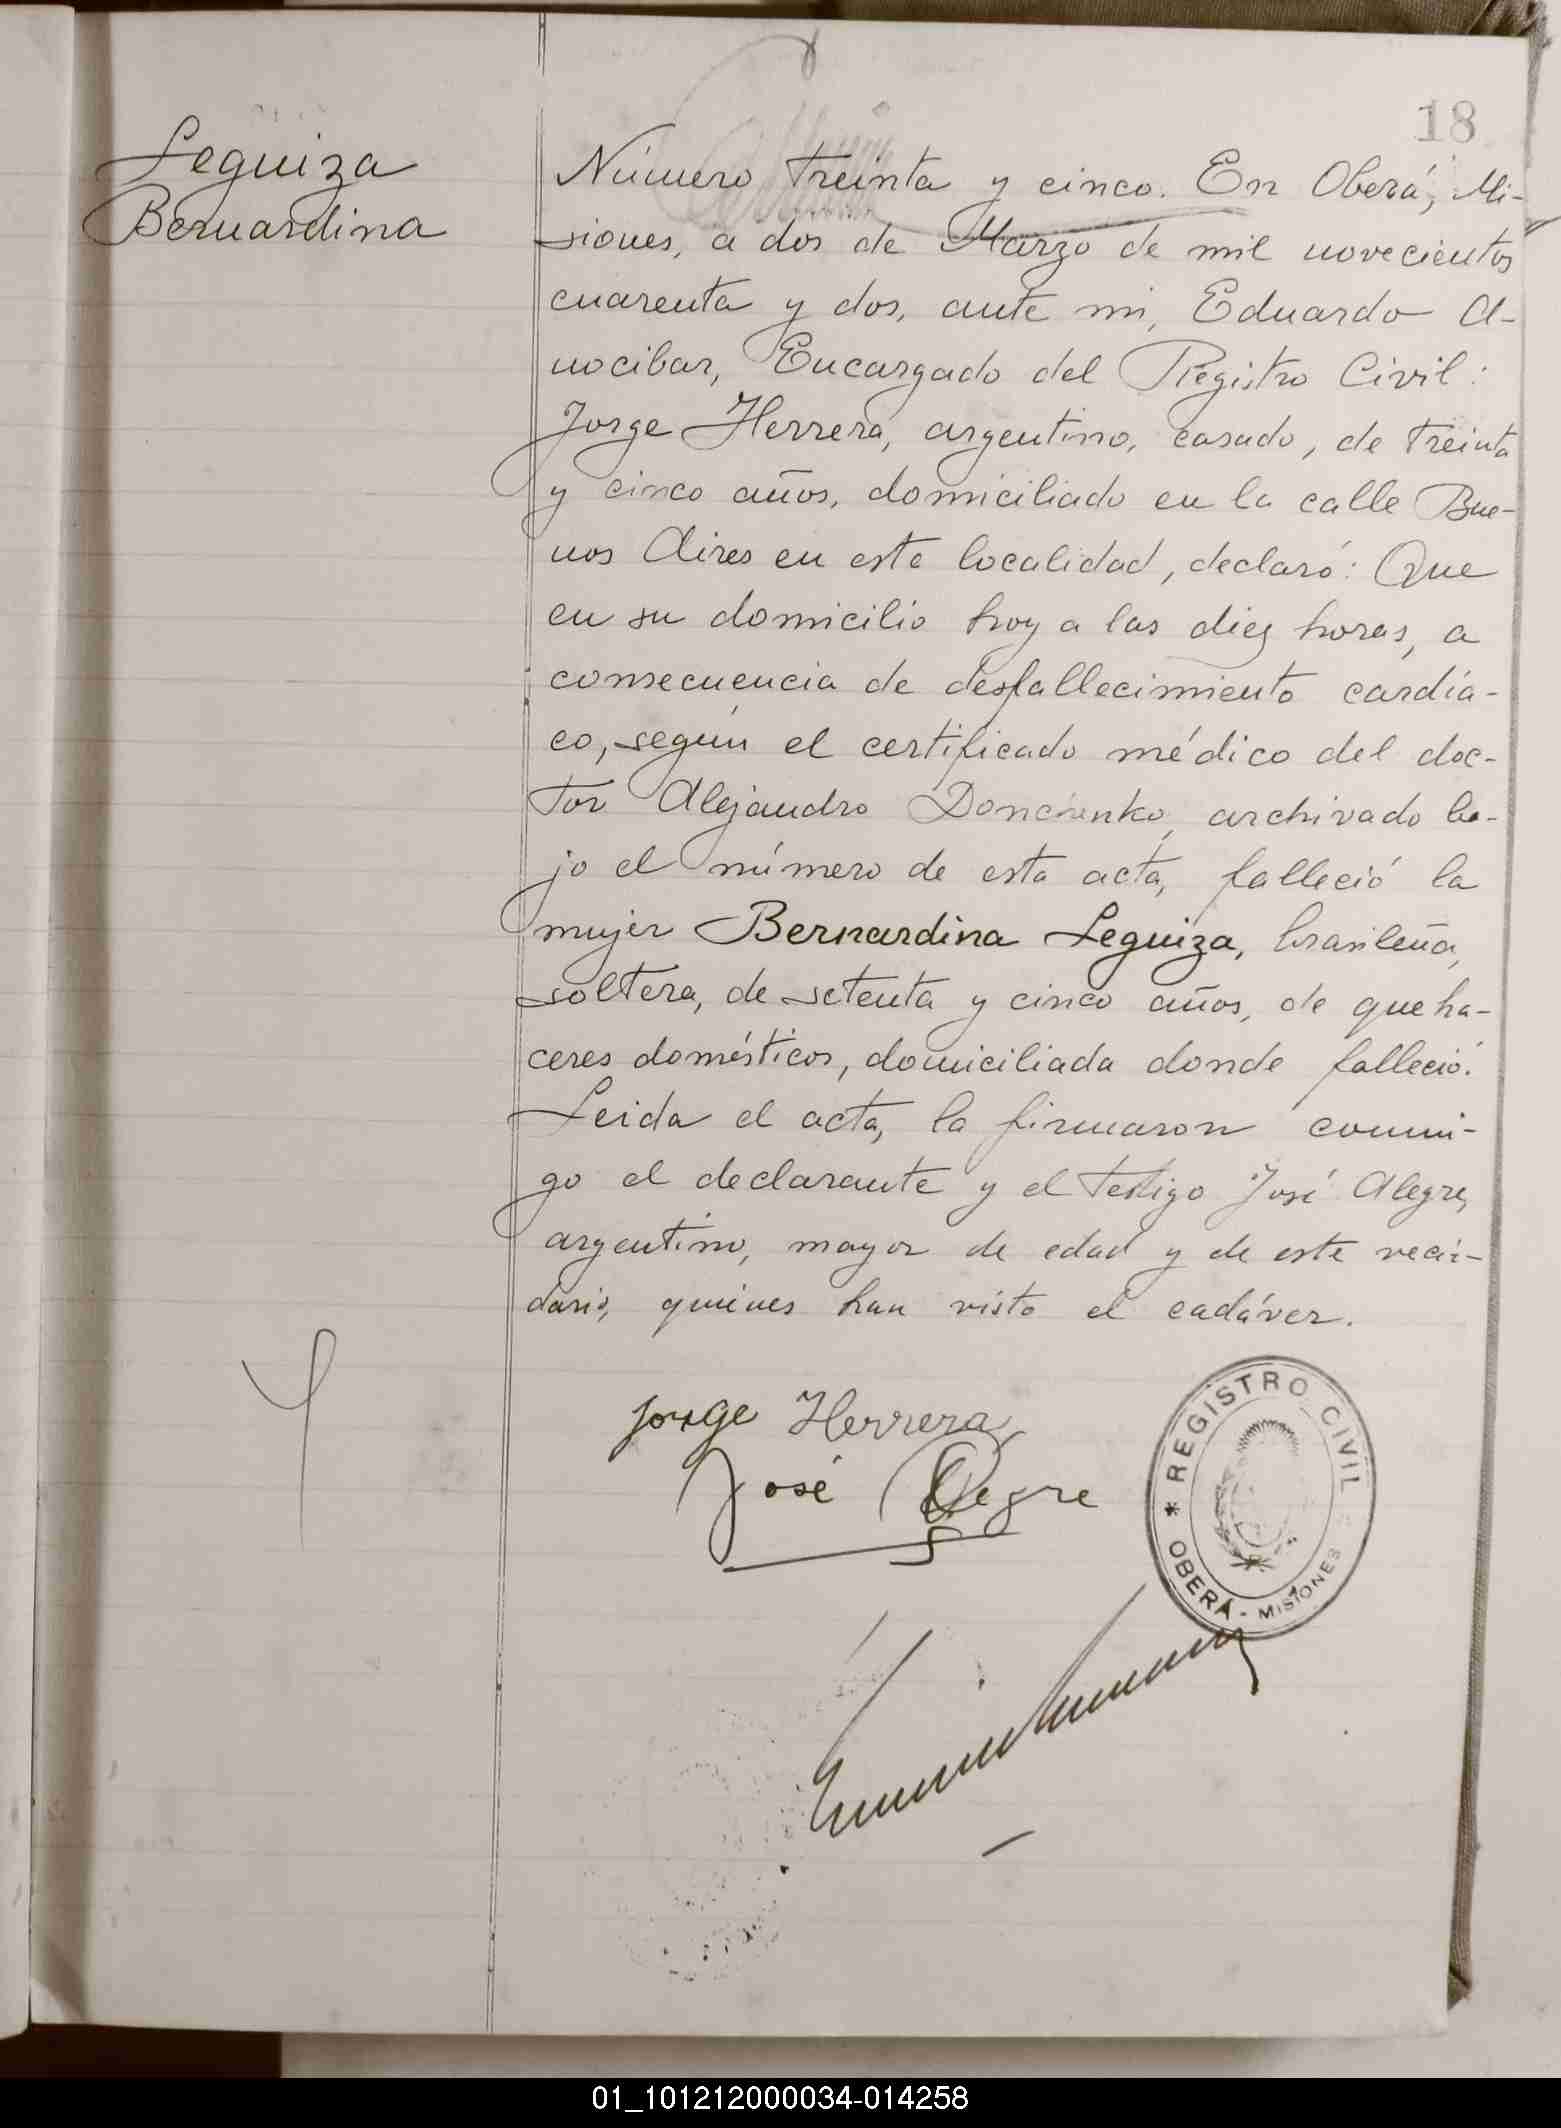 18
Leguiza
Bernardina
Número treinta y cinco. En Oberá, Mi-
siones, a dos de Marzo de mil novecientos
cuarenta y dos, ante mi, Eduardo A-
nocibar, Encargado del Registro Civil:
Jorge Herrera, argentino, casado, de treinta
y cinco años, domiciliado en la calle Bue-
nos Aires en esta localidad, declaró: Que
en su domicilio hoy a las diez horas, a
consecuencia de desfallecimiento cardía-
co, según el certificado médico del doc-
tor Alejandro Donchenko, archivado ba-
jo el número de esta acta, falleció la
mujer Bernardina Leguiza, brasileña,
soltera, de setenta y cinco años, de queha-
ceres domésticos, domiciliada donde falleció.
Leida el acta, la firmaron conmi-
go el declarante y el testigo José Alegre,
argentino, mayor de edad y de este vecin-
dario, quienes han visto el cadáver.
Jorge Herrera
José Alegre
REGISTRO CIVIL
* OBERÁ - MISIONES
01_101212000034-014258